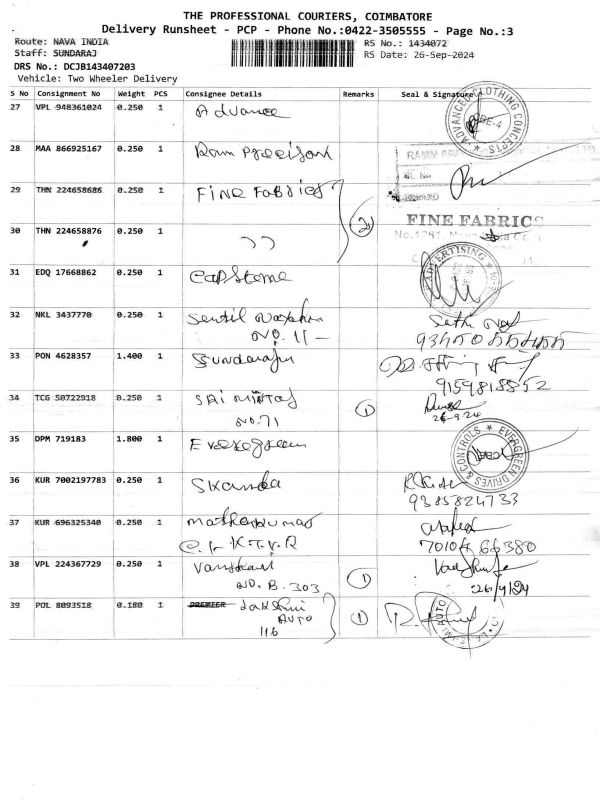 THE PROFESSIONAL COURIERS, COIMBATORE
Delivery Runsheet - PCP - Phone No.:0422-3505555 - Page No.:3
Route: NAVA INDIA
RS No.: 1434072
Staff: SUNDARAJ
RS Date: 26-Sep-2024
DRS No.: DCJB143407203
Vehicle: Two Wheeler Delivery
S No Consignment No Weight PCS Consignee Details Remarks Seal & Signature
27 VPL 948361024 0.250 1 Advance
ADVANCED CLOTHING CONCEPTS CBE-4
28 MAA 866925167 0.250 1 Ram Precision
29 THN 224658686 0.250 1 FINE FABRICS 2
FINE FABRICS
30 THN 224658876 0.250 1 ))
31 EDQ 17668862 0.250 1 Capstone
ADVERTISING
32 NKL 3437770 0.250 1 Sentil
NO. 11 -
33 PON 4628357 1.400 1 Sundarajn
9159818552
34 TCG 50722918 0.250 1 SAI MINTAS 1
NO. 71
26-9-24
35 DPM 719183 1.800 1 Evergreen
EVERGREEN DRIVES & CONTROLS
36 KUR 7002197783 0.250 1 Skanda
9385824733
37 KUR 696325340 0.250 1
70104 66380
38 VPL 224367729 0.250 1 1
NO. B. 303
26/9/24
39 POL 8093518 0.180 1 PREMIER Lakshmi 1
AUTO
116